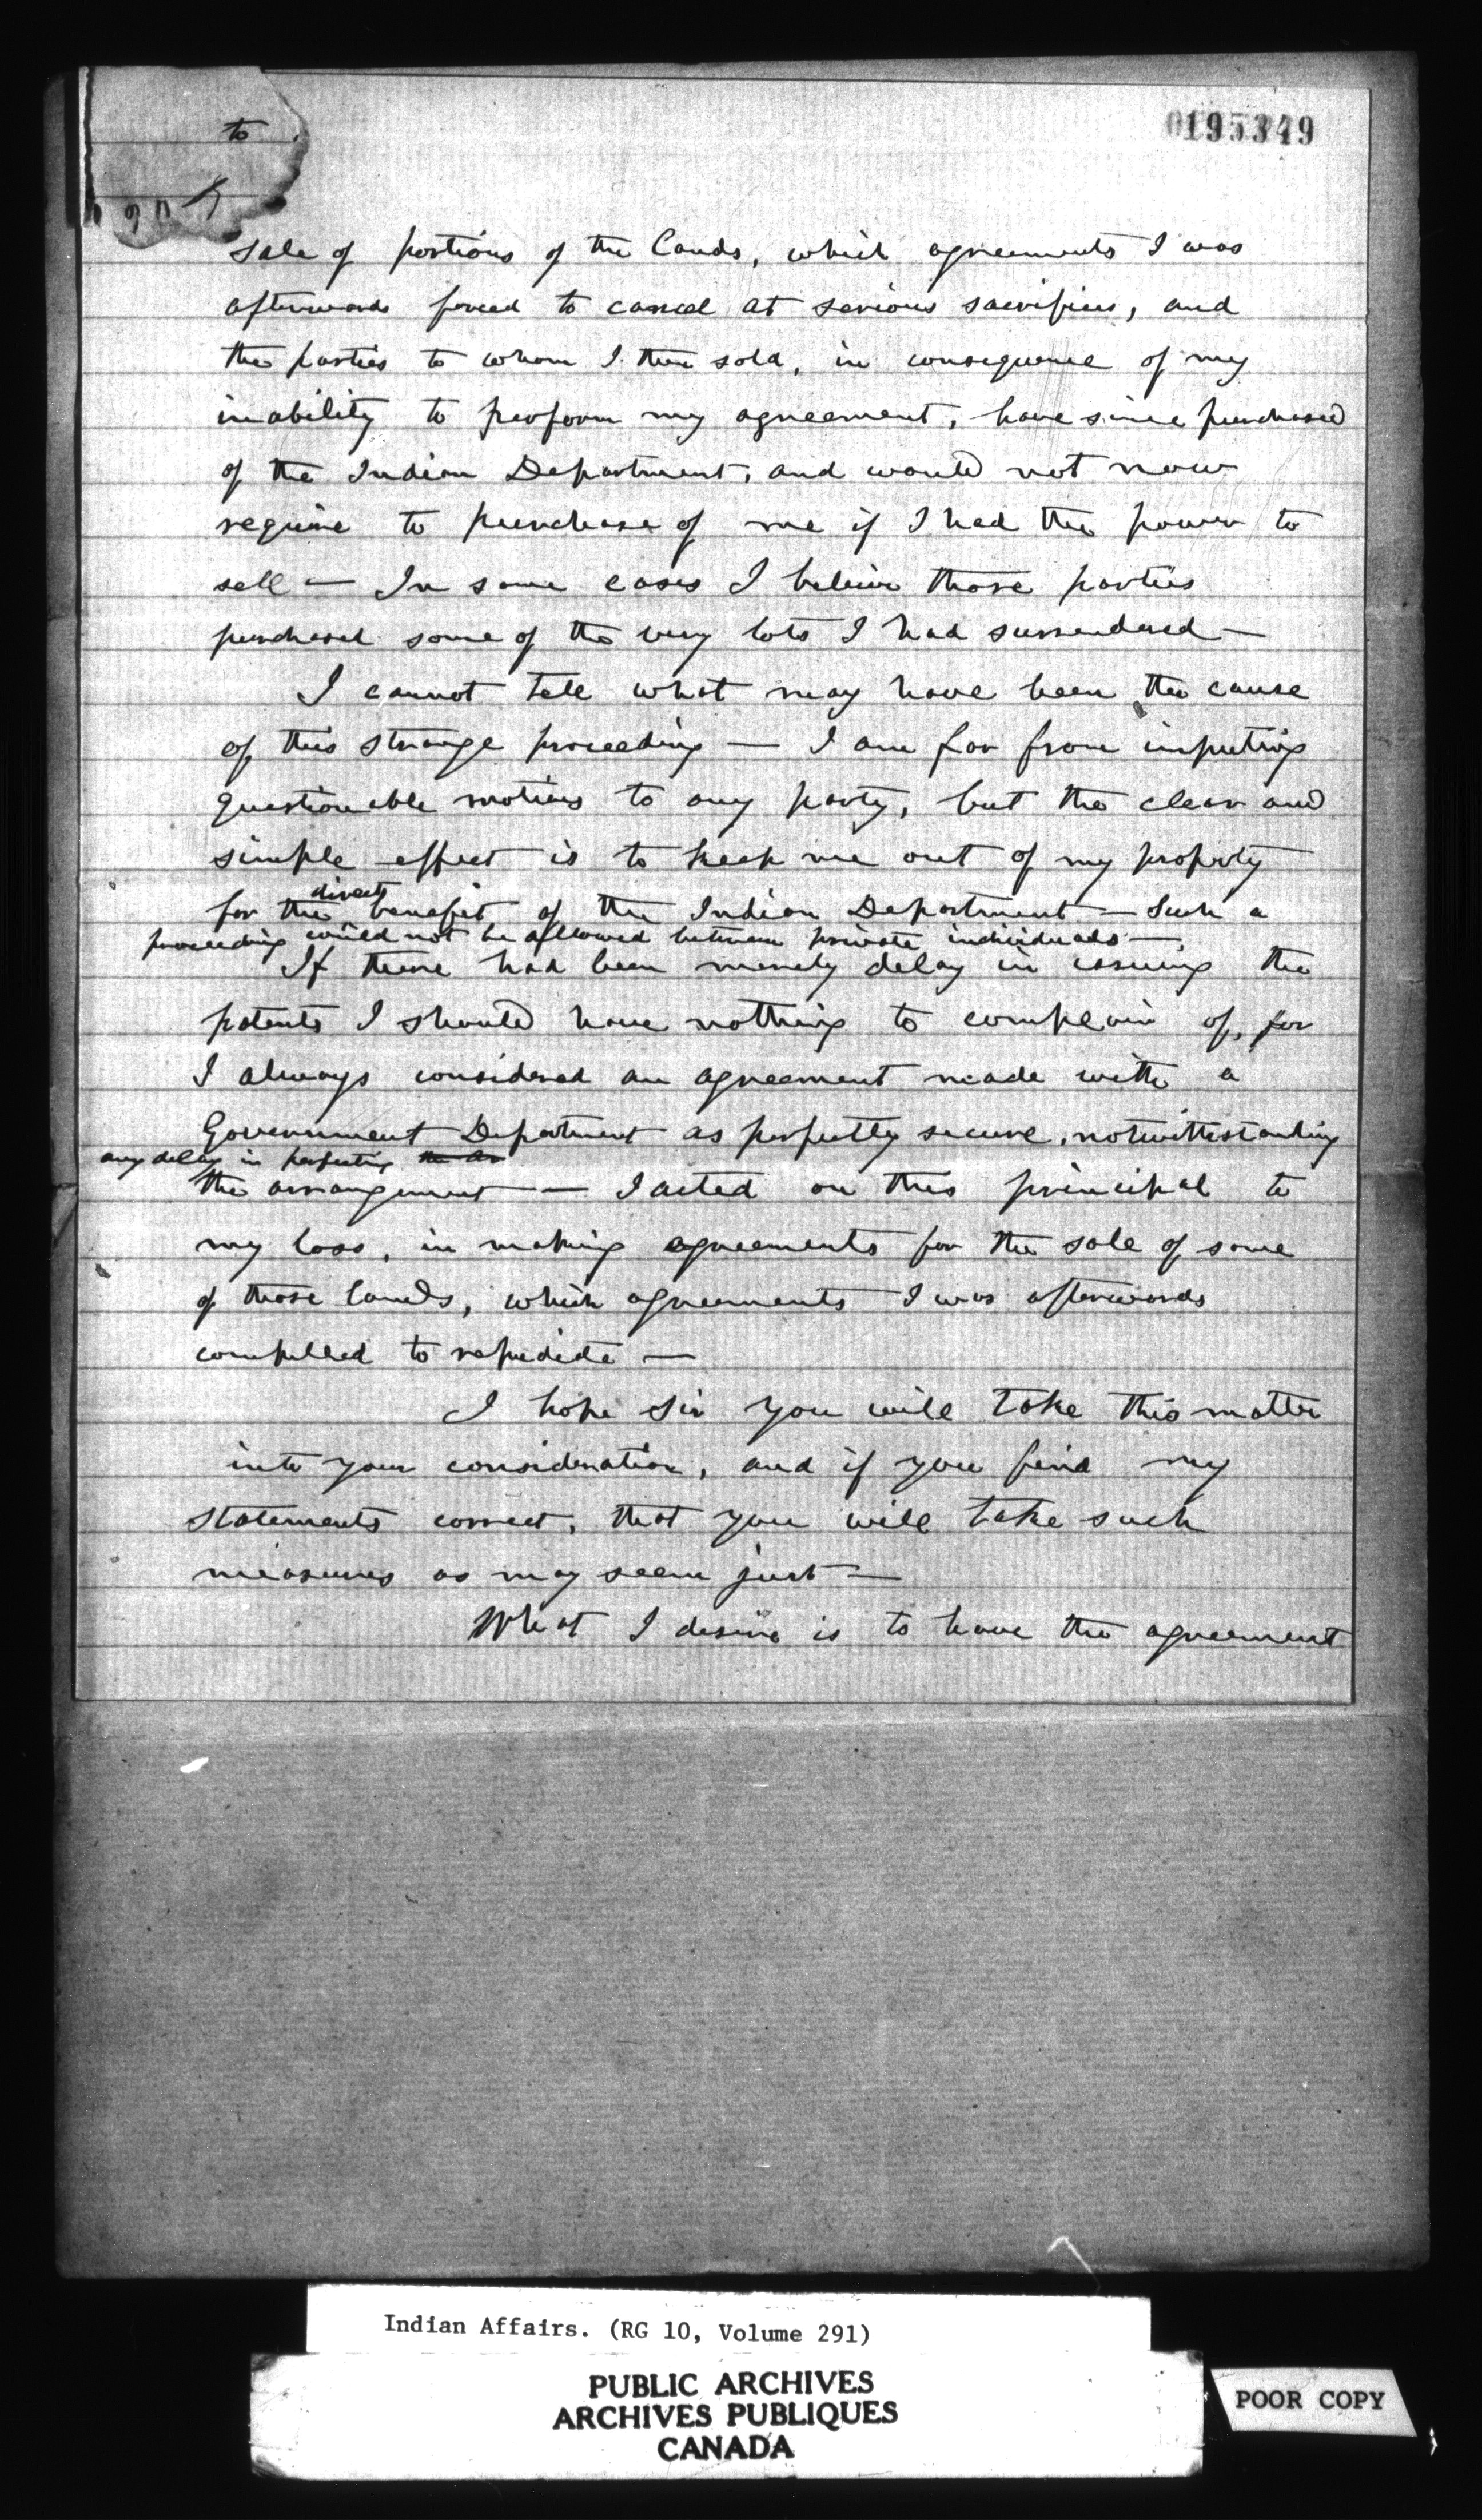 195349
to
sale of portions of the lands, which agreements I was
afterwards forced to cancel at serious sacrifices, and
the parties to whom I then sold, in consequence of my
inability to perform my agreement, have since purchased
of the Indian Department, and would not now
require to purchase of me if I had the power to
sell — In some cases I believe those parties
purchased some of the very lots I had surrendered —
I cannot tell what may have been the cause
of this strange proceeding — I am far from imputing
questionable motives to any party, but the clear and
simple effect is to keep me out of my property
direct
for the benefit of the Indian Department — Such a
proceeding would not be allowed between private individuals —
If there had been merely delay in issuing the
patents I should have nothing to complain of, for
I always considered an agreement made with a
Government Department as perfectly secure, notwithstanding
any delay in perfecting
the arrangement — I acted on this principal to
my loss, in making agreements for the sale of some
of those lands, which agreements I was afterwards
compelled to repudiate —
I hope Sir you will take this matter
into your consideration, and if you find my
statements correct, that you will take such
measures as may seem just —
What I desire is to have the agreement
Indian Affairs. (RG 10, Volume 291)
PUBLIC ARCHIVES
ARCHIVES PUBLIQUES
CANADA
POOR COPY